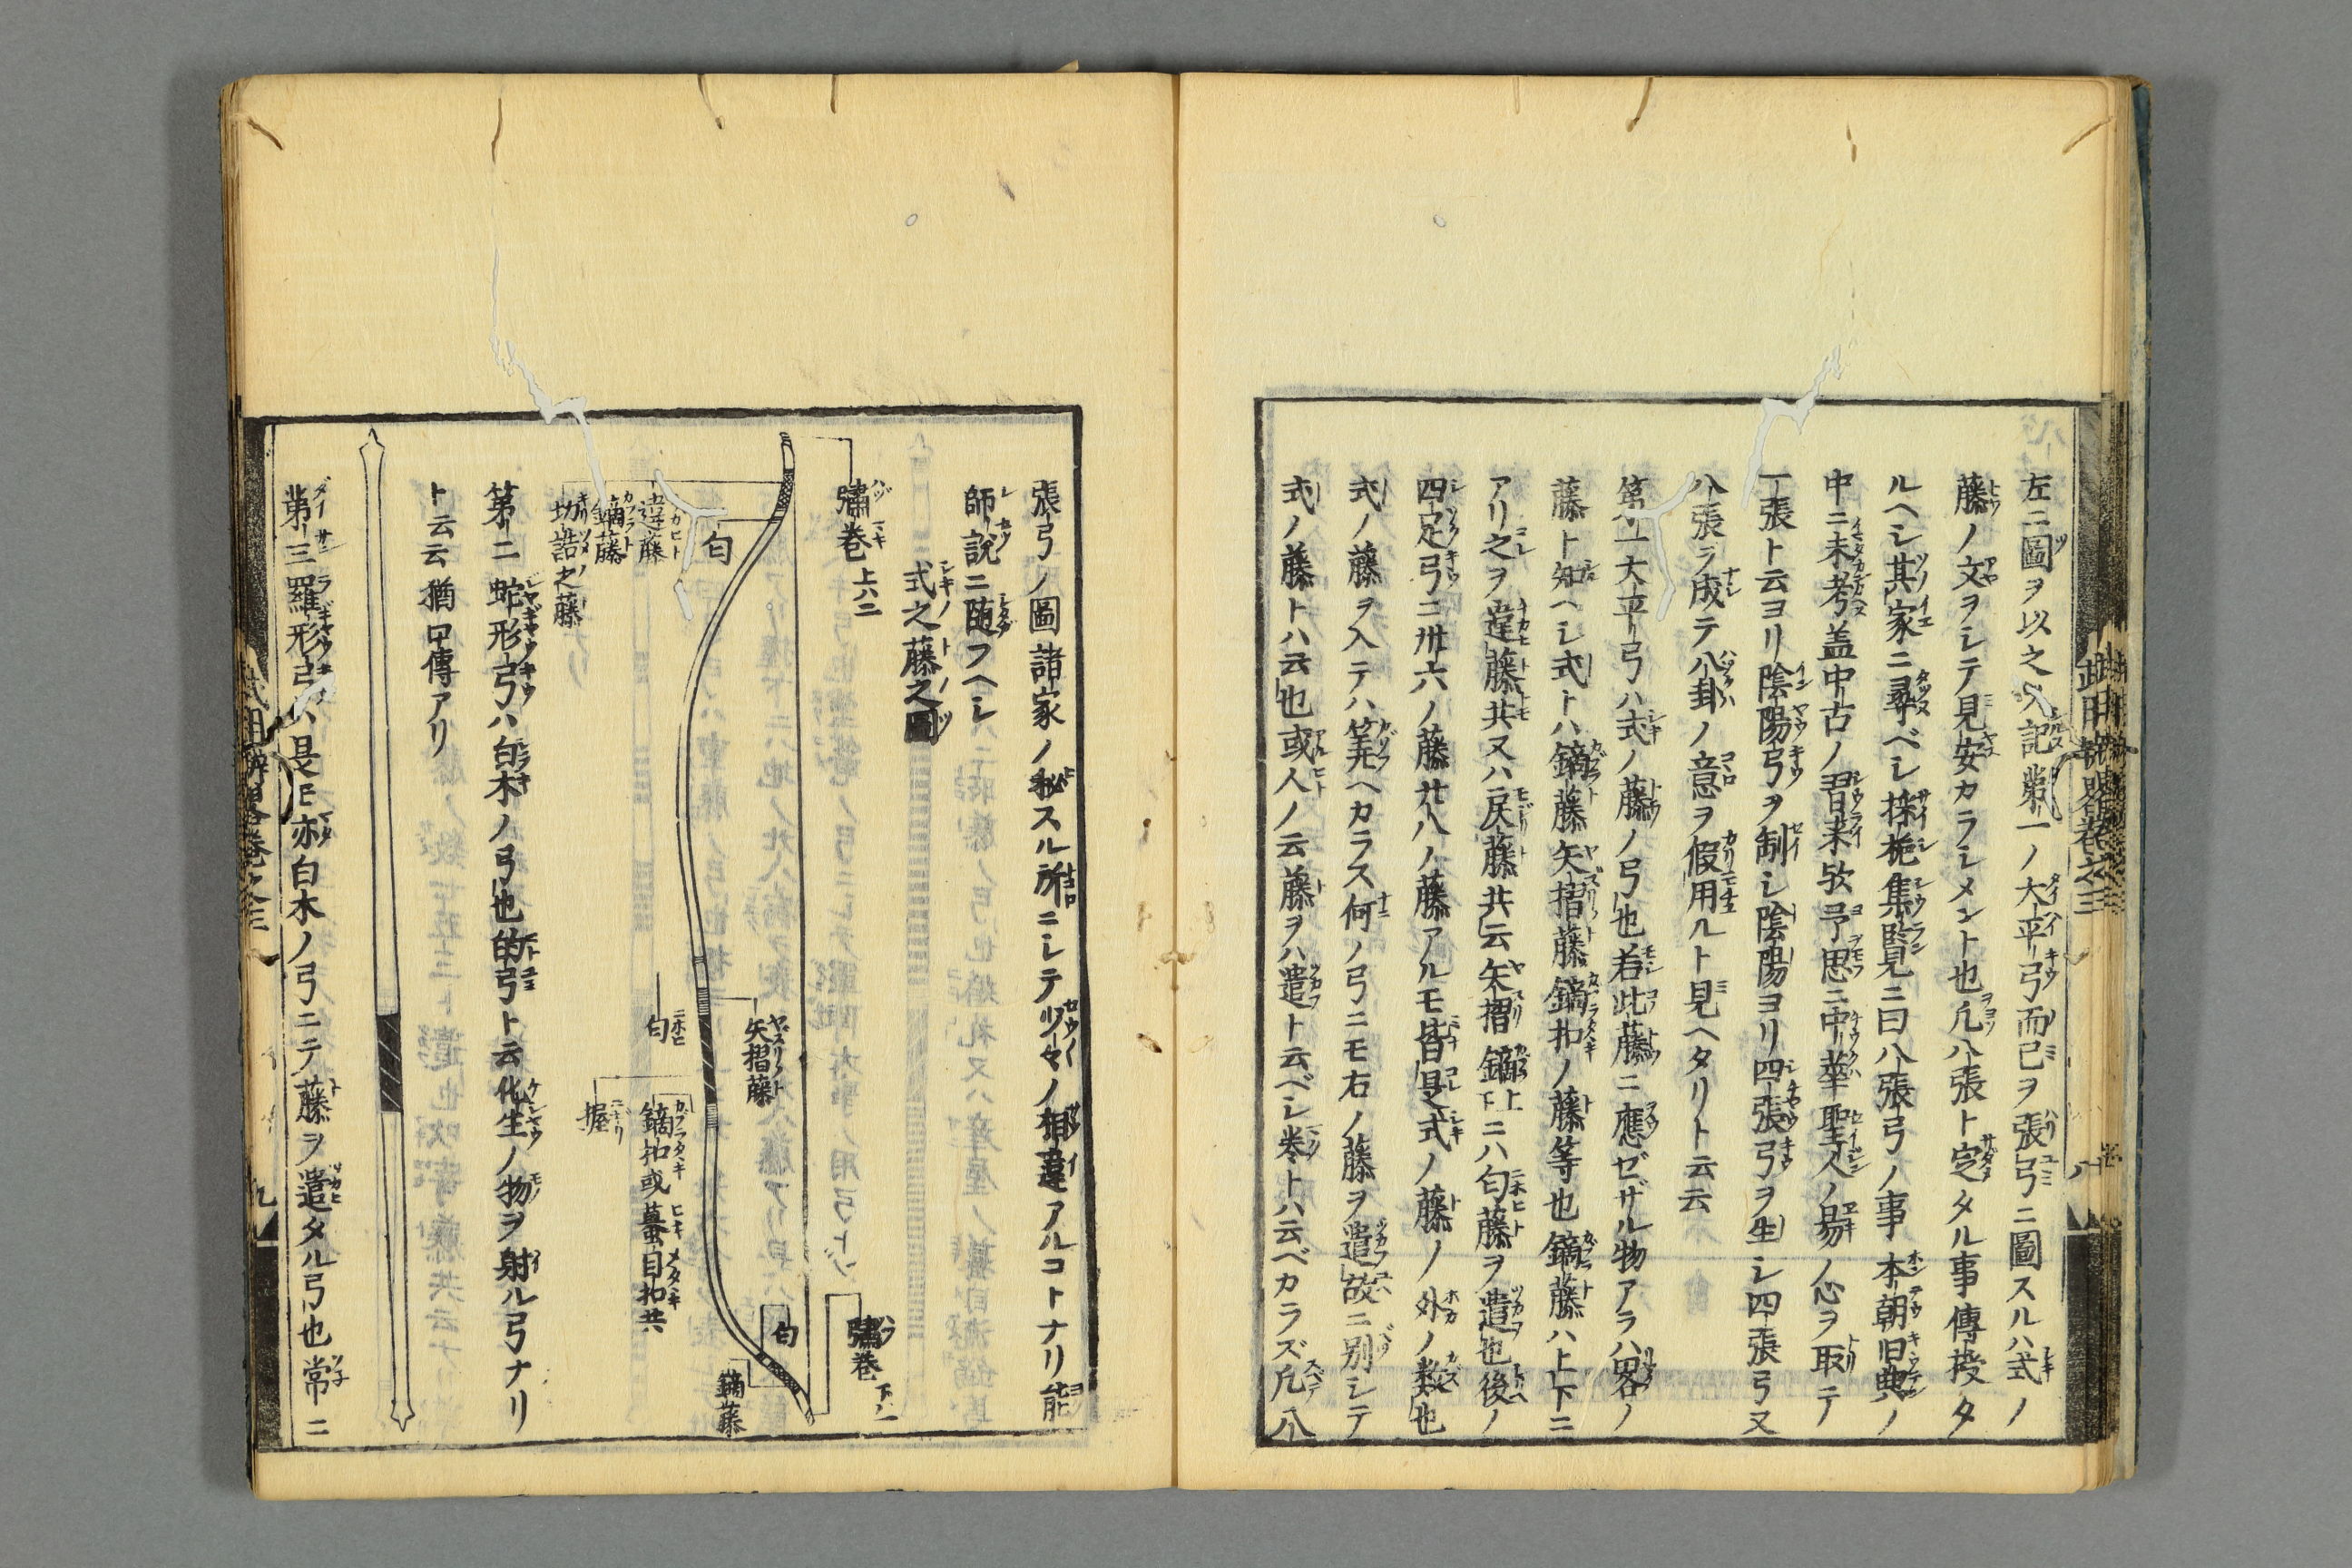 左ニ圖ヲ以之ヲ記第一ノ大平弓而已ヲ張弓ニ圖スルハ式ノ
藤ノ文ヲシテ見安カラシメント也凡八張ト定タル事傳授タ
ルヘシ其家ニ尋ベシ採栬集覧ニ曰八張弓ノ事本朝旧典ノ
中ニ未考盖中古ノ習来欤予思ニ中華聖人ノ易ノ心ヲ取テ
一張ト云ヨリ陰陽弓ヲ制シ陰陽ヨリ四張弓ヲ生シ四張弓又
八張ヲ成テ八卦ノ意ヲ假用ルト見ヘタリト云云
第一大平弓ハ式ノ藤ノ弓也若此藤ニ應ゼザル物アラハ畧ノ
藤ト知ヘシ式トハ鏑藤矢摺藤鏑扣ノ藤等也鏑藤ハ上下ニ
アリ之ヲ違藤共又ハ戻藤共云矢摺鏑上下ニハ匂藤ヲ遣也後ノ
四足弓ニ卅六ノ藤廿八ノ藤アルモ皆是式ノ藤ノ外ノ数也
式ノ藤ヲ入テハ筭ヘカラス何ノ弓ニモ右ノ藤ヲ遣故ニ別シテ
式ノ藤トハ云也或人ノ云藤ヲハ遣ト云ベシ巻トハ云ベカラズ凡八
武用辨畧巻之三
八
張弓ノ圖諸家ノ秘スル所ニシテ少々ノ相違アルコトナリ能
師説ニ随フヘシ
式之藤之圖
彇巻 上六二
彇巻 下ハ一
匂
違藤
鏑藤
切詰之藤
矢摺藤
匂
鏑扣或蟇目扣共
握
匂
鏑藤
第二蛇形弓ハ白木ノ弓也的弓ト云化生ノ物ヲ射ル弓ナリ
ト云云猶口傳アリ
第三羅形弓ハ是モ亦白木ノ弓ニテ藤ヲ遣タル弓也常ニ
武用辨畧巻之三
九